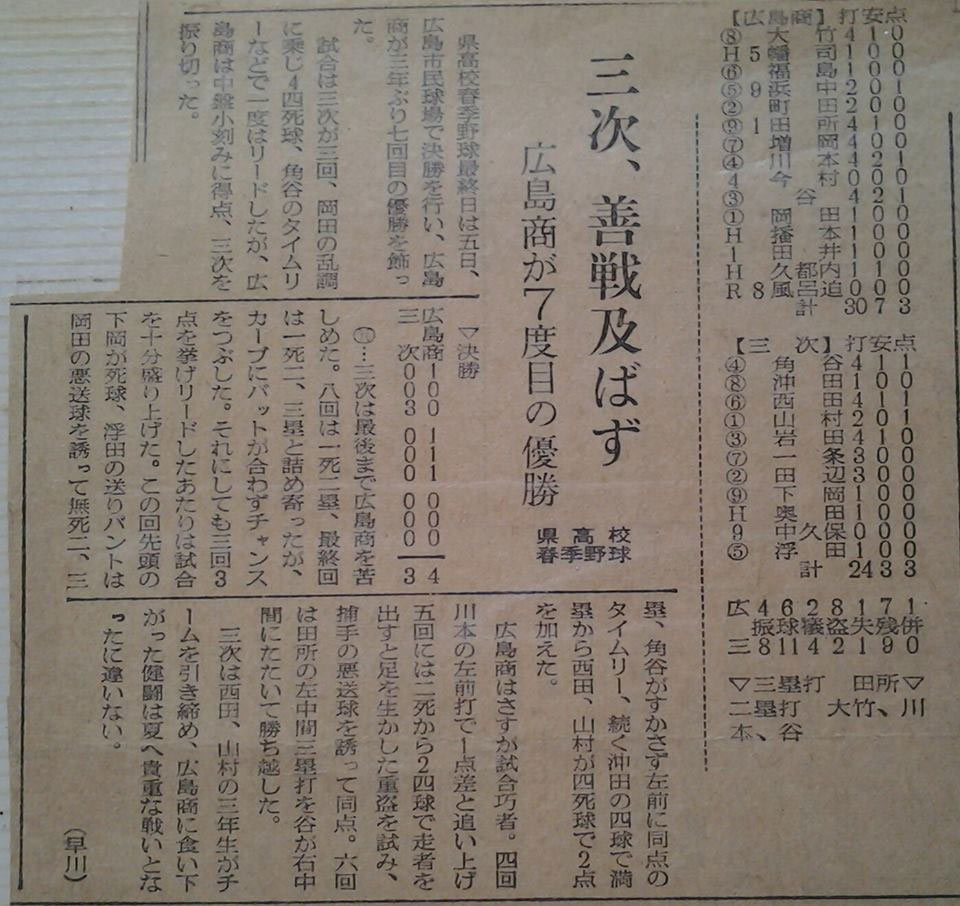 【広島商】打安点
⑧ 大竹 4 1 0
H 5 幡司 1 0 0
⑥ 福島 1 0 0
⑤ 9 浜中 2 0 1
② 町田 2 0 0
⑨ 1 田所 4 1 0
⑦ 増岡 4 0 0
④ 川本 4 2 1
4 今村 0 0 0
③ 谷 4 2 1
① 岡田 1 0 0
H 播本 1 0 0
1 田井 1 0 0
H 久都内 1 1 0
R 8 風呂迫 0 0 0
計 30 7 3
【三次】打安点
④ 角谷 4 1 1
⑧ 沖田 1 0 0
⑥ 西田 4 1 1
① 山村 2 0 1
③ 岩田 4 1 0
⑦ 一条 3 0 0
② 田辺 3 0 0
⑨ 下岡 1 0 0
H 奥田 1 0 0
9 中久保 0 0 0
⑤ 浮田 1 0 0
計 24 3 3
広 4 6 2 8 1 7 1
振球犠盗失残併
三 8 11 4 2 1 9 0
▽三塁打 田所▽
二塁打 大竹、川
本、谷
三次、善戦及ばず
広島商が7度目の優勝
県高校
春季野球
県高校春季野球最終日は五日、
広島市民球場で決勝を行い、広島
商が三年ぶり七回目の優勝を飾っ
た。
試合は三次が三回、岡田の乱調
に乗じ4四死球、角谷のタイムリ
ーなどで一度はリードしたが、広
島商は中盤小刻みに得点、三次を
振り切った。
▽決勝
広島商 100 111 000 4
三次 003 000 000 3
㊟…三次は最後まで広島商を苦
しめた。八回は一死二塁、最終回
は一死二、三塁と詰め寄ったが、
カーブにバットが合わずチャンス
をつぶした。それにしても三回3
点を挙げリードしたあたりは試合
を十分盛り上げた。この回先頭の
下岡が死球、浮田の送りバントは
岡田の悪送球を誘って無死二、三
塁、角谷がすかさず左前に同点の
タイムリー、続く沖田の四球で満
塁から西田、山村が四死球で2点
を加えた。
広島商はさすが試合巧者。四回
川本の左前打で1点差と追い上げ
五回には二死から2四球で走者を
出すと足を生かした重盗を試み、
捕手の悪送球を誘って同点。六回
は田所の左中間三塁打を谷が右中
間にたたいて勝ち越した。
三次は西田、山村の三年生がチ
ームを引き締め、広島商に食い下
がった健闘は夏へ貴重な戦いとな
ったに違いない。
(早川)